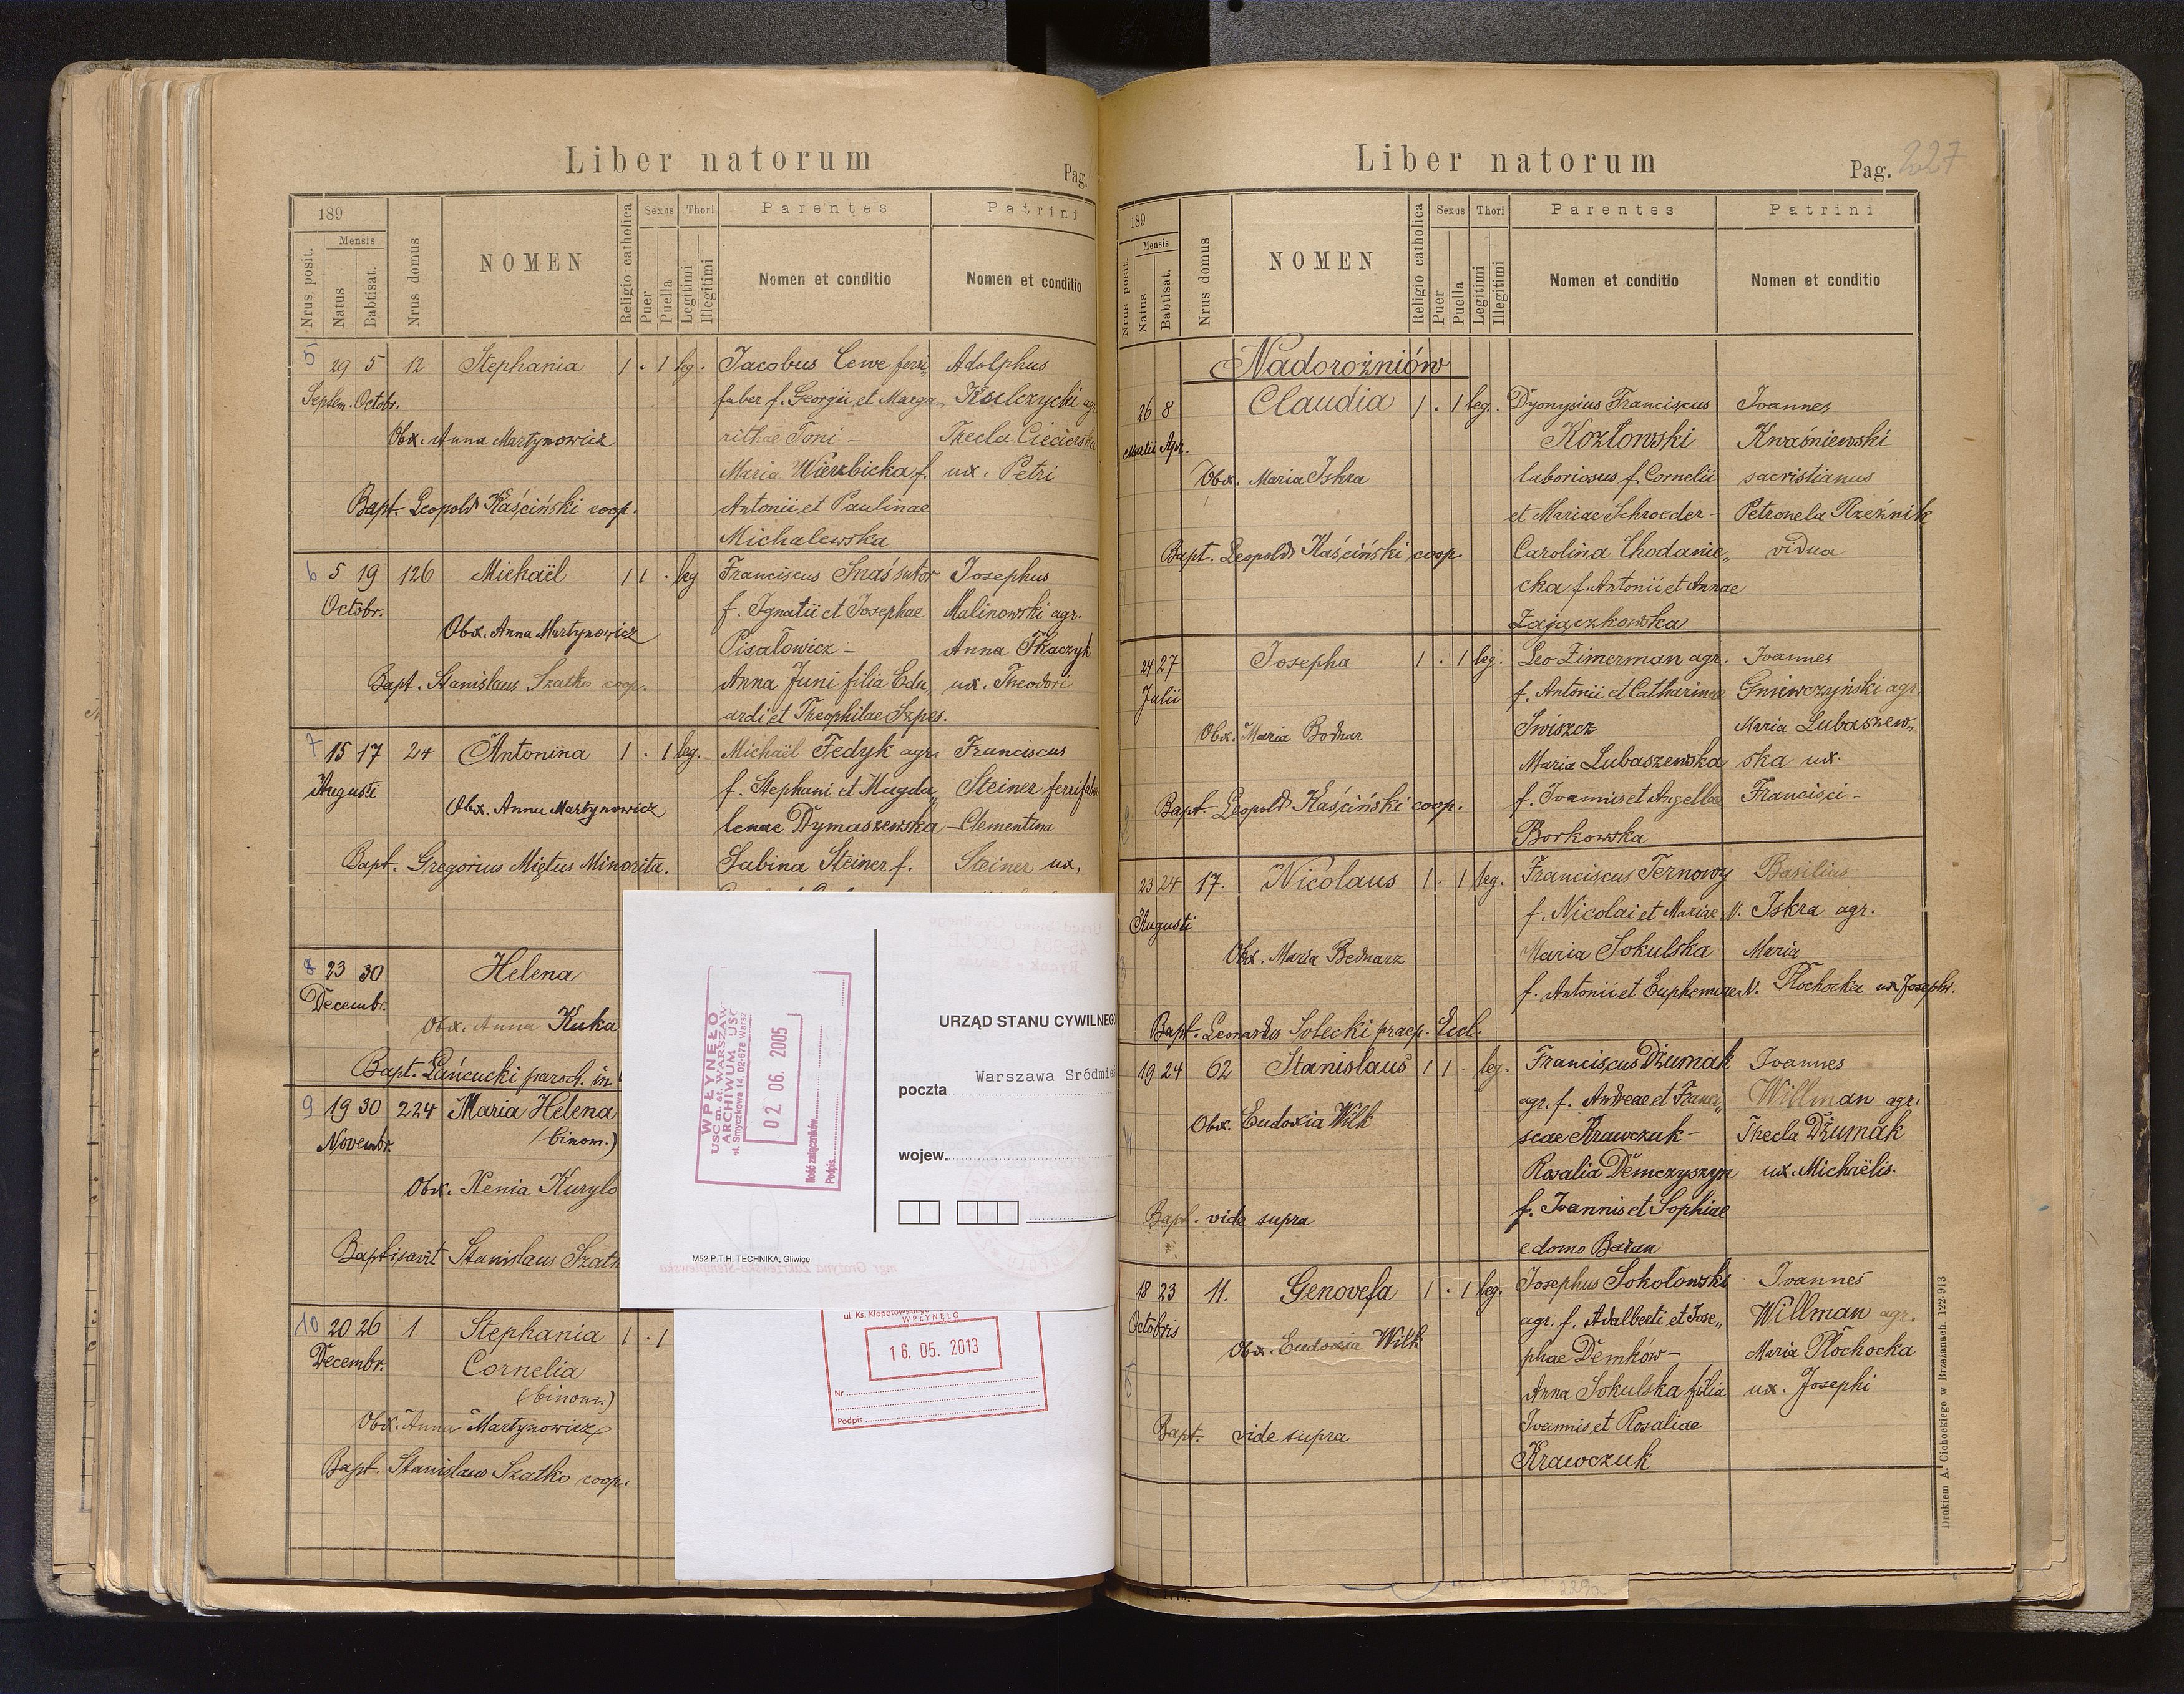 Liber natorum
Pag.
189
Nrus. posit.
Mensis
Natus
Babtisat.
Nrus domus
NOMEN
Religio catholica
Sexus
Puer
Puella
Thori
Legitimi
Illegitimi
Parentes
Nomen et conditio
Patrini
Nomen et conditio
5 29 5 12 Stephania 1 . 1 leg. Jacobus Cewe ferri„ Adolphus
Septem. Octobr. faber f. Georgii et Marga„ Kulczycki agr
Obx. Anna Martynowicz rithae Toni – Thecla Ciecierska
Maria Wierzbicka f. ux. Petri
Bapt. Leopold Kaściński coop. Antonii et Paulinae
Michalewska
6 5 19 126 Michaël 1 1 . leg Franciscus Snaś sutor Josephus
Octobr. f. Ignatii et Josephae Malinowski agr.
Obx. Anna Martynowicz Pisałowicz – Anna Tkaczyk
Bapt. Stanislaus Szatko coop. Anna Juni filia Edu„ ux. Theodori
ardi et Theophilae Szpes.
7 15 17 24 Antonina 1 . 1 leg. Michaël Fedyk agr. Franciscus
Augusti f. Stephani et Magda„ Steiner ferrifaber
Obx. Anna Martynowicz lenae Dymaszewska – Clementina
Bapt. Gregorius Miętus Minorita. Sabina Steiner f. Steiner ux,
8 23 30 Helena
Decembr.
Obx. Anna Kuka
Bapt. Łańcucki paroch. in
9 19 30 224 Maria Helena
Novembr. (binom.)
Obx. Xenia Kurylo
Baptisavit Stanislaus Szatk
10 20 26 1 Stephania 1 . 1
Decembr. Cornelia
(binom.)
Obx. Anna Martynowicz
Bapt. Stanislaus Szatko coop.
WPŁYNĘŁO
USC m. st. WARSZAW
ARCHIWUM USC
ul. Smyczkowa 14, 02-678 Warsz
02. 06. 2005
Ilość załączników
Podpis
URZĄD STANU CYWILNEGO
poczta Warszawa Sródmieś
wojew.
M52 P.T.H. TECHNIKA, Gliwice
ul. Ks. Kłopotowskiego
WPŁYNĘŁO
16. 05. 2013
Nr
Podpis
Liber natorum
Pag. 227
189
Nrus posit.
Mensis
Natus
Babtisat.
Nrus domus
NOMEN
Religio catholica
Sexus
Puer
Puella
Thori
Legitimi
Illegitimi
Parentes
Nomen et conditio
Patrini
Nomen et conditio
Nadorożniów
26 8 Claudia 1 . 1 leg. Dyonysius Franciscus Joannes
Martii Apr. Kozłowski Kwaśniewski
Obx. Maria Iskra laboriosus f. Cornelii sacristianus
et Mariae Schroeder – Petronela Rzeźnik
Bapt. Leopold Kaściński coop. Carolina Chodanie„ vidua
cka f. Antonii et Annae
Zajączkowska
24 27 Josepha 1 . 1 leg. Leo Zimerman agr. Joannes
Julii f. Antonii et Catharinae Gniewczyński agr.
Obx. Maria Bodnar Swiszcz Maria Lubaszew„
Maria Lubaszewska ska ux.
Bapt. Leopold Kaściński coop. f. Joannis et Angellae Francisci –
Borkowska
23 24 17. Nicolaus 1 . 1 leg. Franciscus Ternowy Basilius
Augusti f. Nicolai et Mariae N. Iskra agr.
Obx. Maria Bednarz Maria Sokulska Maria
f. Antonii et Euphemiae N. Płochocka ux Josephi.
Bapt. Leonardus Solecki praep. Eccl.
19 24 62 Stanislaus 1 1 . leg. Franciscus Dżumak Joannes
agr. f. Andreae et Franci„ Willman agr.
Obx. Eudoxia Wilk scae Krawczuk – Thecla Dżumak
Rosalia Demczyszyn ux. Michaëlis.
Bapt. vide supra f. Joannis et Sophiae
e domo Baran
18 23 11. Genovefa 1 . 1 leg. Josephus Sokołowski Joannes
Octobris agr. f. Adalberti et Jose„ Willman agr.
Obx. Eudoxia Wilk phae Demków – Maria Płochocka
Anna Sokulska filia ux. Josephi
Bapt. vide supra Joannis et Rosaliae
Krawczuk
Drukiem A. Cichockiego w Brzeżanach. 122-913